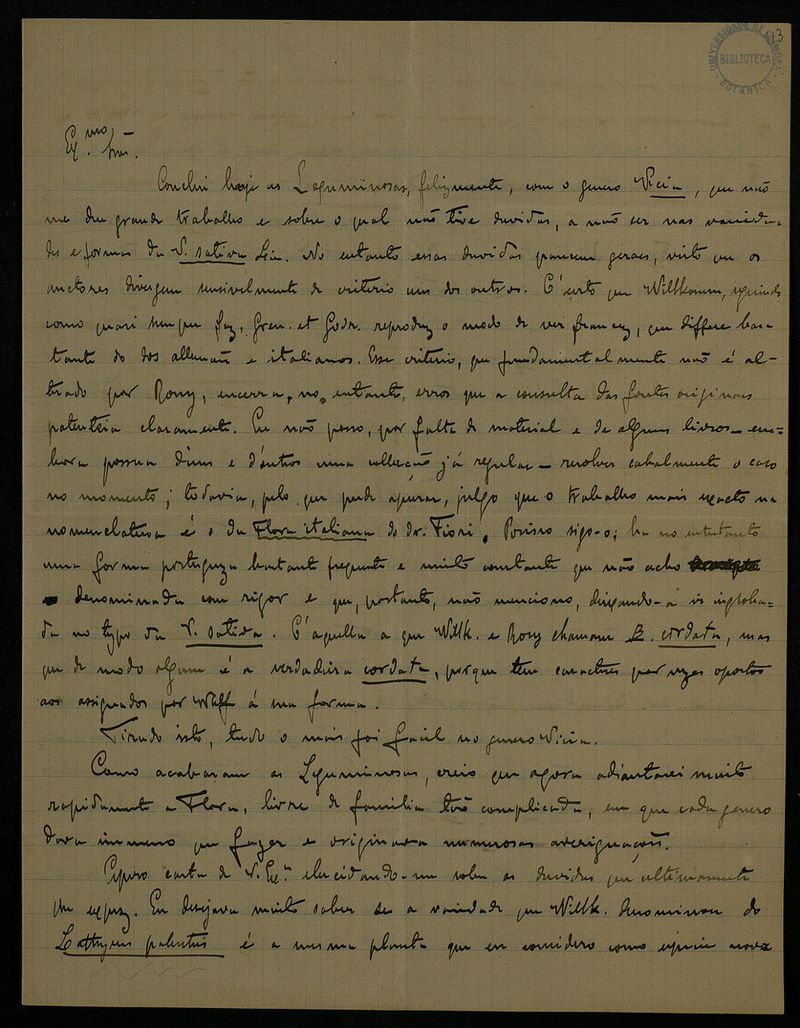 613
UNIVERSIDADE DE COIMBRA
BIBLIOTECA
BOTANICA
Ex.mo Snr.
Conclui hoje as Leguminosas, felizmente, com o genero Vicia, que não
me deu grande trabalho e sobre o qual não tive duvidas, a não ser nas varieda-
des e formas da V. sativa Lin. No entanto essas duvidas parecem geraes, visto que os
auctores divergem sensivelmente de criterio uns dos outros. É certo que Willkomm, seguindo
como quasi sempre faz, Gren. et Godr. reproduz o modo de ver francez, que differe bas-
tante do dos allemães e italianos. Esse criterio, que fundamentalmente não é al-
terado por Rouy, encerra, no entanto, erros que a consulta das fontes originaes
patenteia claramente. Eu não posso, por falta de material e de alguns livros – em-
bora possua d'uns e d'outros uma collecção já regular – resolver cabalmente o caso
no momento; todavia, pelo que pude apurar, julgo que o trabalho mais exacto na
nomenclatura é o da Flora italiana do dr. Fiori. Porisso sigo-o; ha no entretanto
uma forma portugueza bastante frequente e muito constante que não acho
denominada com rigor e que, portanto, não menciono, deixando-a ir engloba-
da no typo da V. sativa. É aquella a que Willk. e Rouy chamam B. cordata, mas
que de modo algum é a verdadeira cordata, porque tem caracteres por vezes oppostos
aos assignados por Wulf á sua forma.
Tirando isto, tudo o mais foi facil no genero Vicia.
Como acabaram as Leguminosas, creio que agora adiantarei muito
rapidamente a Flora, livre de familia tão complicada, em que cada genero
dava immenso que fazer e originava numerosas averiguações.
Espero carta de V. Ex.ª elucidando-me sobre as duvidas que ultimamente
lhe expuz. Eu desejava muito saber se a variedade que Willk. denominou do
Lathyrus palustris é a mesma planta que eu considero como especie nova